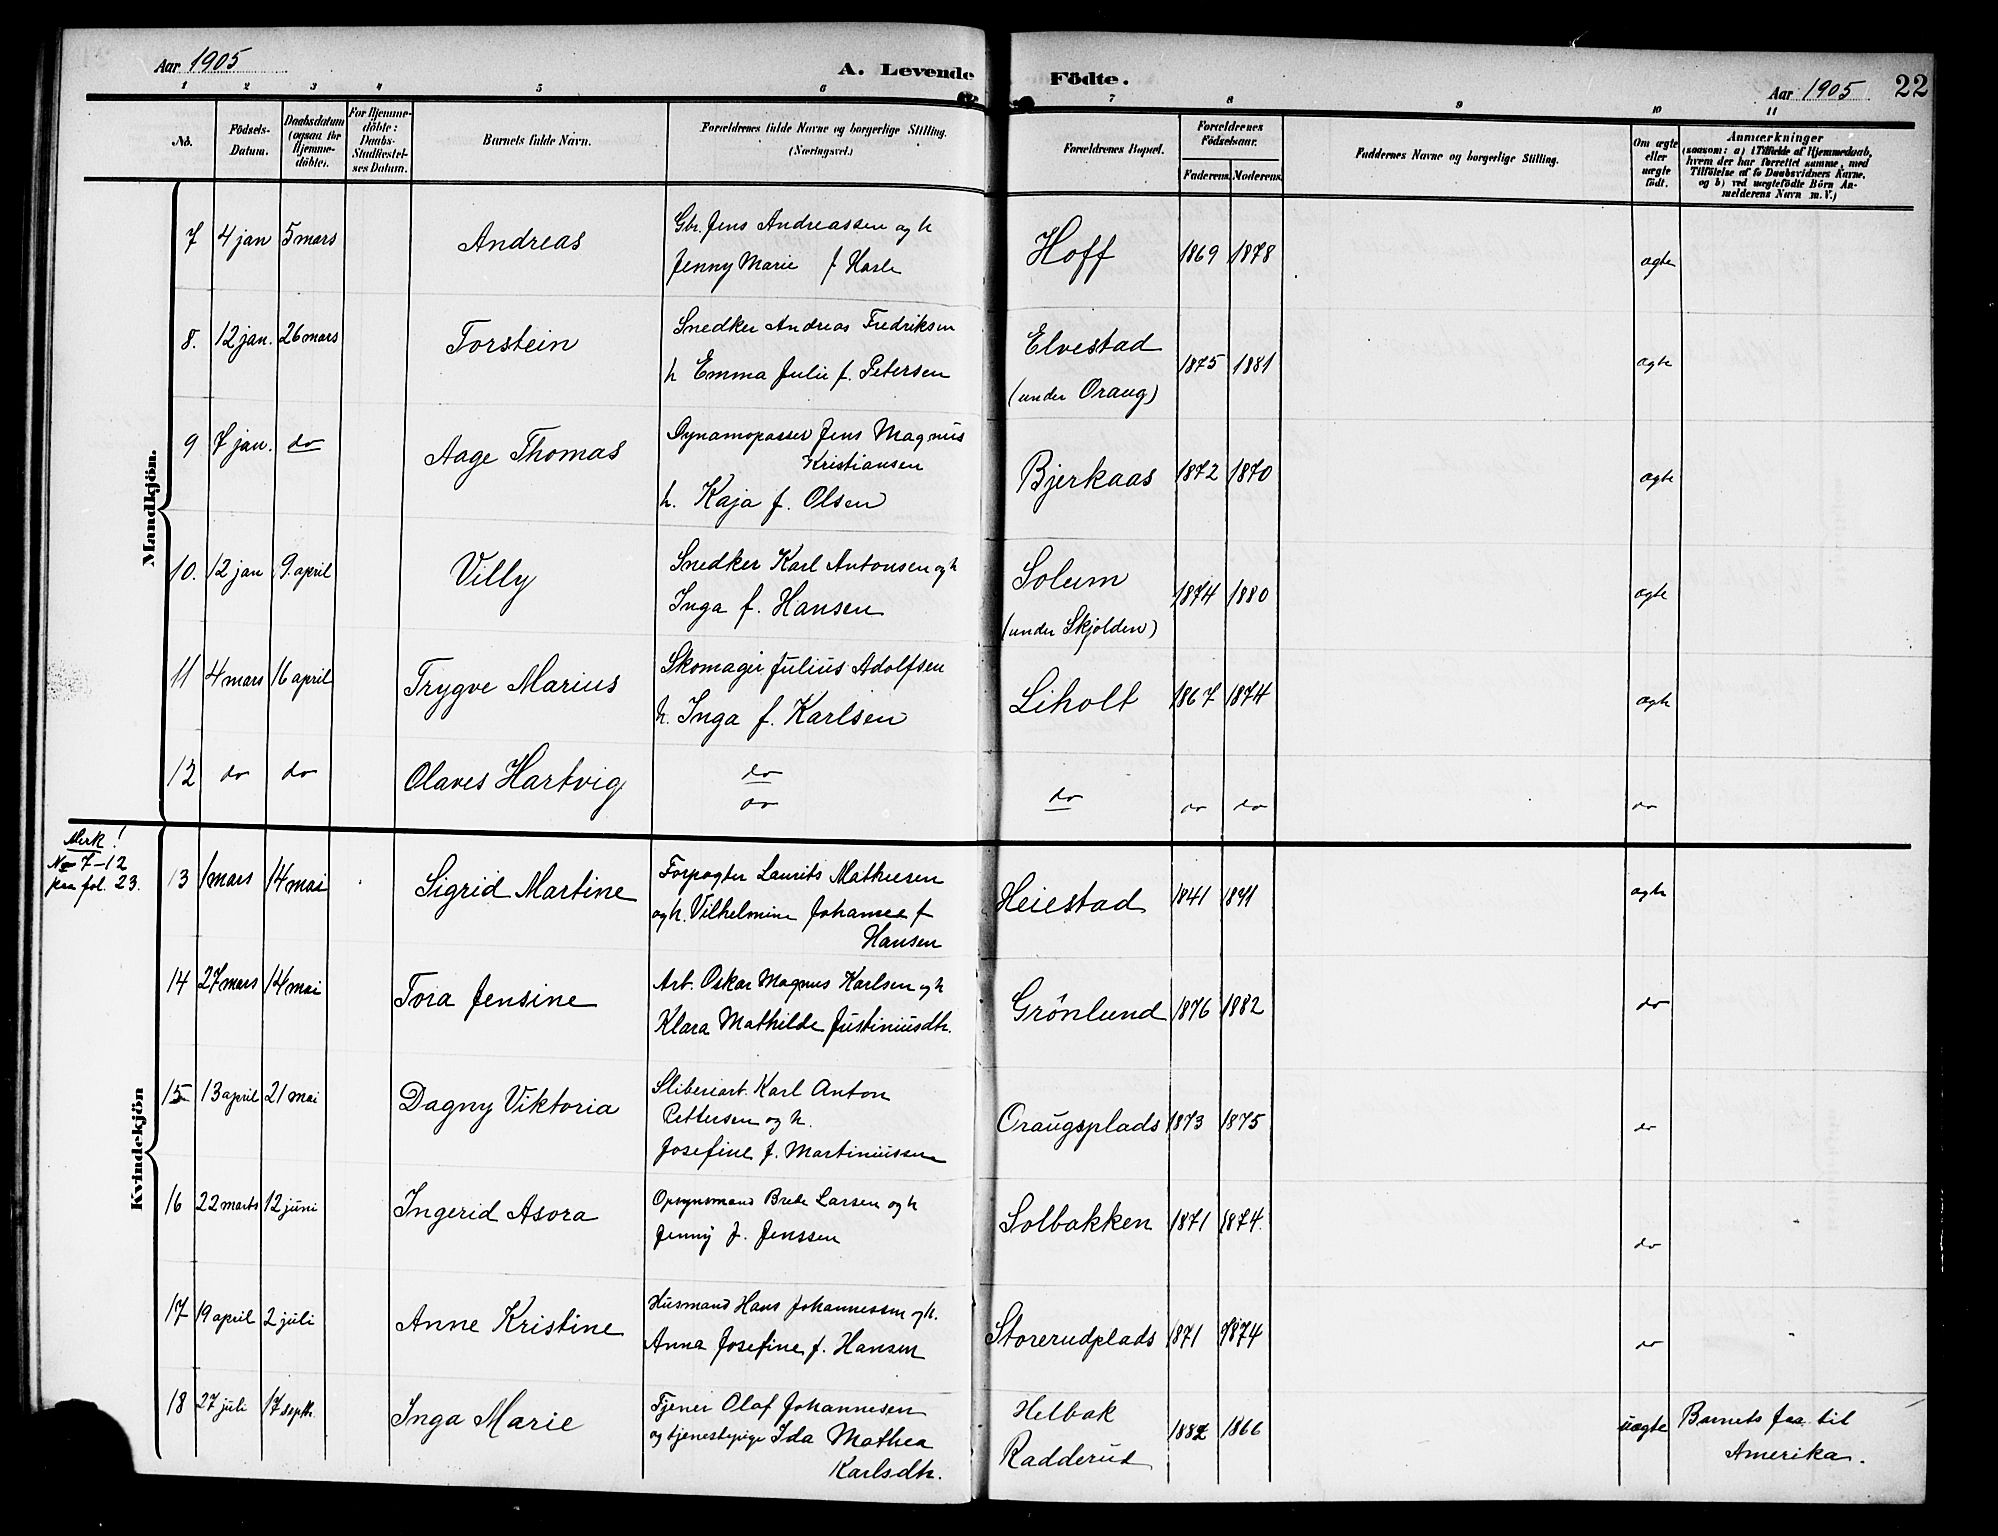 Aar 1905
A. Levende Födte.
Aar 1905 22
1 2 3 4 5 6 7 8 9 10 11
No.
Födsels-Datum.
Daabsdatum (ogsaa for Hjemmedöbte).
For Hjemmedöbte: Daabs-Stadfæstelses Datum.
Barnets fulde Navn.
Forældrenes fulde Navne og borgerlige Stilling. (Næringsvei.)
Forældrenes Bopæl.
Forældrenes Födselsaar.
Faderens. Moderens.
Faddernes Navne og borgerlige Stilling.
Om ægte eller uægte födt.
Anmærkninger
(saasom: a) i Tilfælde af Hjemmedaab, hvem der har forrettet samme, med Tilföielse af to Daabsvidners Navne, og b) ved uægtefödte Börn Anmelderens Navn m. V.)
Mandkjön.
7 4 jan 5 mars Andreas Gbr. Jens Andreassen og h Hoff 1869 1878 ægte
Jenny Marie f
8. 12 jan. 26 mars Torstein Snedker Andreas Fredriksen Elvestad 1875 1881 ægte
h Emma Julie f. Petersen (under Oraug)
9 7 jan. do Aage Thomas Dynamopasser Jens Magnus Bjerkaas 1872 1870 ægte
Kristiansen
h. Kaja f. Olsen
10. 12 jan 9. april Villy Snedker Karl Antonsen og h Solum 1874 1880 ægte
Inga f. Hansen (under Skjolden)
11 4 mars 16 april Trygve Marius Skomager Julius Adolfsen Liholt 1867 1874 ægte
h. Inga f. Karlsen
12 do do Olaves Hartvig do do do do do
do
Merk!
No 7-12
paa fol. 23.
Kvindekjön
13 1 mars 14 mai Sigrid Martine Forpagter Laurits Mathiesen Heiestad 1841 ægte
og h. Vilhelmine f
Hansen
14 27 mars 14 mai Tora Jensine Arb. Oskar Magnus Karlsen og h Grönlund 1876 1882 do
Klara Mathilde Justiniusdtr.
15 13 april 21 mai Dagny Viktoria Sliberiarb. Karl Anton Oraugsplads 1873 1875 do
Pettersen og h.
Josefine f. Martiniussen
16 22 marts 12 juni Ingerid Asora Opsynsmand Brede Larsen og h Solbakken 1871 1874. do
Jenny f. Jenssen
17 19 april 2 juli Anne Kristine Husmand Hans Johannessen og h. Storerudplads 1871 1874 do
Anna Josefine f. Hansen
18 27 juli 17 septb. Inga Marie Tjener Olaf Johannesen Helbak 1882 1866 uægte Barnets far til
og tjenestepige Ida Mathea Radderud Amerika.
Karlsdtr.